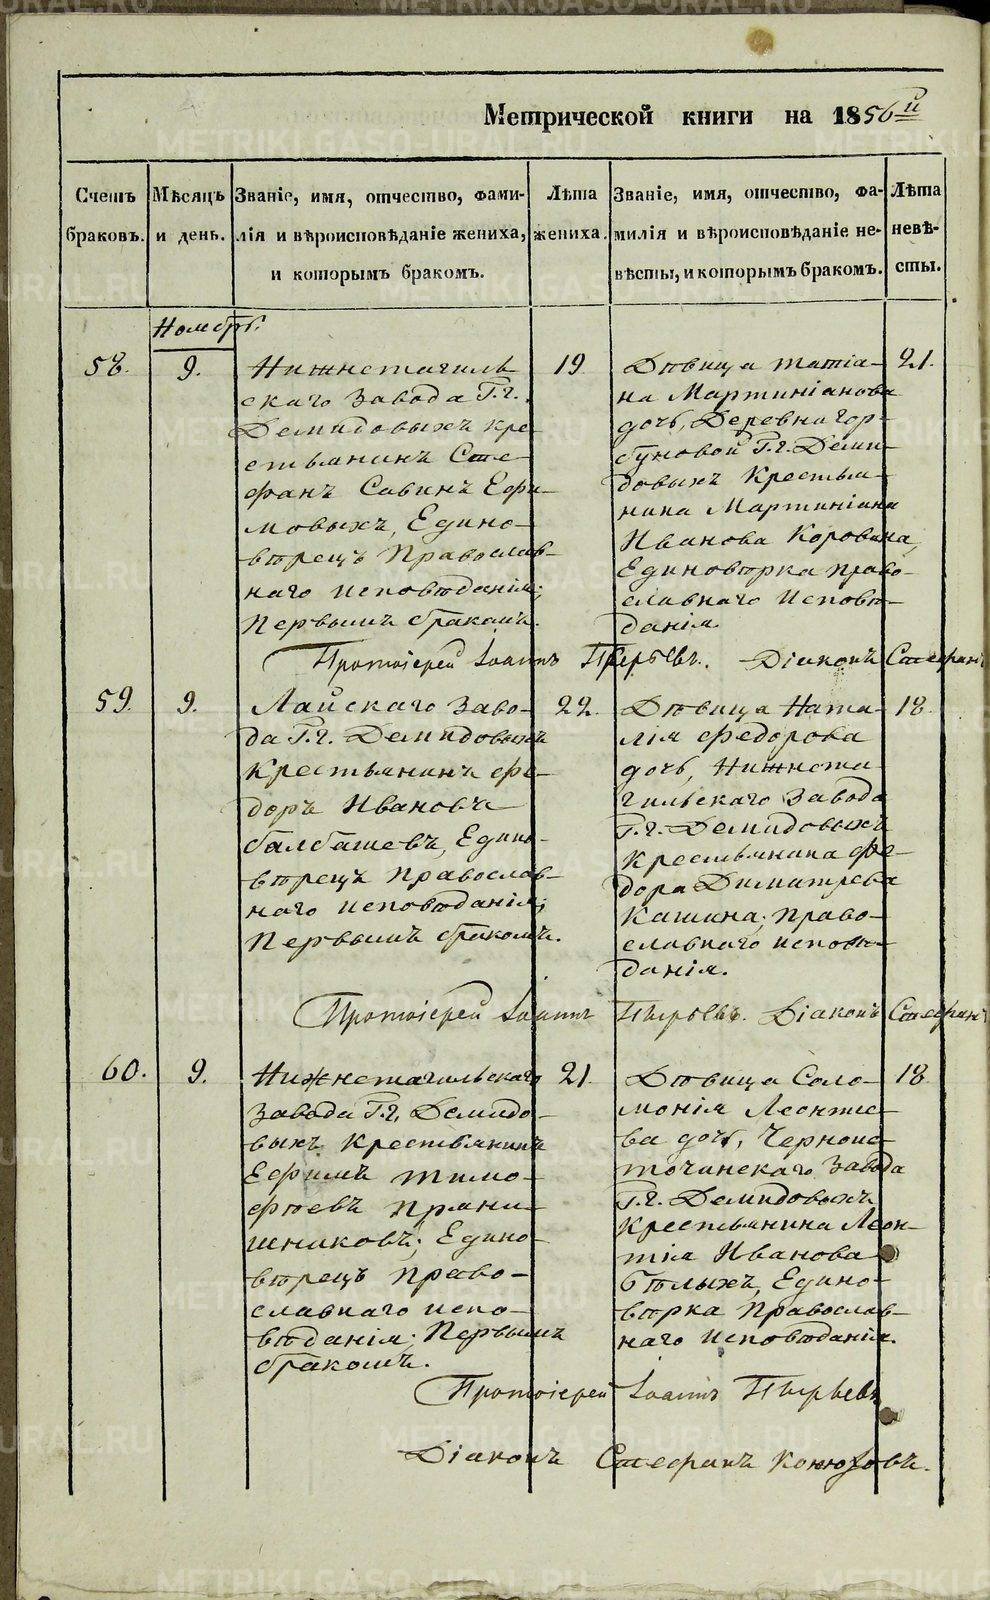 Метрической книги на 1856й
Счетъ браковъ.
Мѣсяцъ и день.
Званіе, имя, отчество, фами-
лія и вѣроисповѣданіе жениха,
и которымъ бракомъ.
Лѣта
жениха.
Званіе, имя, отчество, фа-
милія и вѣроисповѣданіе не-
вѣсты, и которымъ бракомъ.
Лѣта
невѣ-
сты.
Ноябрь.
58.
9.
Нижнетагиль
скаго Завода Г.г.
Демидовыхъ кре-
стьянинъ Сте-
фанъ Савинъ Ефи-
мовыхъ, Едино-
вѣрецъ Православ-
наго исповѣданія;
Первымъ бракомъ.
19
Дѣвица Татіа-
на Мартиніанова
дочь, Деревни Гор-
буновой Г.г. Деми-
довыхъ Крестья-
нина Мартиніана
Иванова Коровина,
Единовѣрка право-
славнаго Исповѣ-
данія.
21.
Протоіерей Іоаннъ Пырьевъ. Діаконъ Стефанъ
59.
9.
Лайскаго Заво-
да Г.г. Демидовыхъ
Крестьянинъ Фе-
доръ Ивановъ
Балбашевъ, Едино-
вѣрецъ Православ-
наго исповѣданія;
Первымъ бракомъ.
22.
Дѣвица Ната-
лія Федорова
дочь, Нижнета-
гильскаго Завода
Г.г. Демидовыхъ
Крестьянина Фе-
дора Димитрева
Кашина; Право-
славнаго исповѣ-
данія.
18.
Протоіерей Іоаннъ Пырьевъ. Діаконъ Стефанъ
60.
9.
Нижнетагильскаго
Завода Г.г. Демидо-
выхъ Крестьянинъ
Ефимъ Тимо-
фѣевъ Пряни-
шниковъ; Едино-
вѣрецъ Право-
славнаго испо-
вѣданія; Первымъ
бракомъ.
21.
Дѣвица Соло-
монія Леонтіе-
ва дочь, Черноис-
точинскаго Завода
Г.г. Демидовыхъ
Крестьянина Леон-
тія Иванова
Бѣлыхъ, Едино-
вѣрка Православ-
наго Исповѣданія.
18
Протоіерей Іоаннъ Пырьевъ
Діаконъ Стефанъ Конюховъ.
METRIKI.GASO-URAL.RU